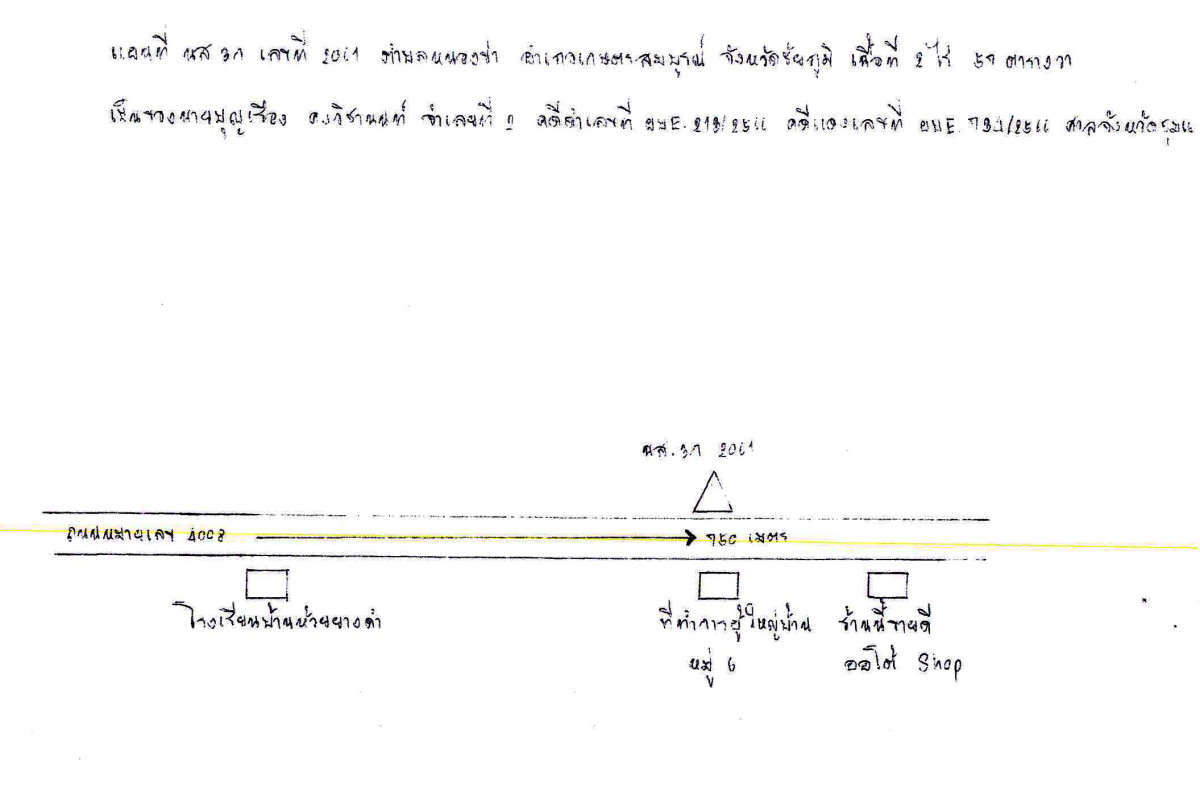 แผนที่ นส 3ก เลขที่ 2061 ตำบลหนองข่า อำเภอเกษตรสมบูรณ์ จังหวัดชัยภูมิ เนื้อที่ 2 ไร่ 59 ตารางวา
เป็นของนายบุญเรือง คงวิชานนท์ จำเลยที่ 2 คดีดำเลขที่ ผบE. 213/2566 คดีแดงเลขที่ ผบE. 734/2566 ศาลจังหวัด
นส.3ก 2061
ถนนหมายเลข 4008
750 เมตร
โรงเรียนบ้านห้วยยางดำ
ที่ทำการผู้ใหญ่บ้าน
หมู่ 6
ร้านนี้ขายดี
ออโต้ Shop